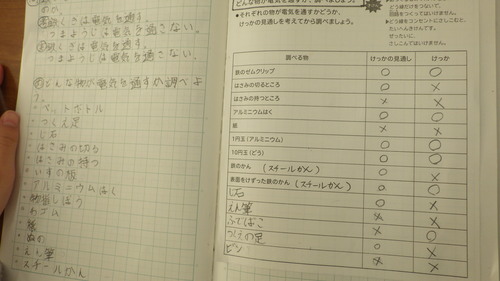 くぎは電気を通す。
つまようじは電気を通さない。
くぎは電気を通す。
つまようじは電気を通さない。
どんな物が電気を通すか調べよ
う。
・ペットボトル
・つくえ足
・じ石
・はさみの切る
・はさみの持つ
・いすの板
・アルミニウムはく
・物さしぼう
・わゴム
・紙
・ぬの
・えん筆
・スチールかん
どんな物が電気を通すか、調べましょう。
●それぞれの物が電気を通すかどうか、
けっかの見通しを考えてから調べましょう。
どう線だけをつないでは、
回路をつくってはいけません。
●どう線をコンセントにさしこむと、
たいへんきけんです。
ぜったいに、
さしこんではいけません。
調べる物 けっかの見通し けっか
鉄のゼムクリップ ○ ○
はさみの切るところ ○ ×
はさみの持つところ × ×
アルミニウムはく ○ ○
紙 × ×
1円玉(アルミニウム) ○ ○
10円玉(どう) ○ ○
鉄のかん (スチールかん) ○ ×
表面をけずった鉄のかん (スチールかん) ○ ○
じ石 ○ ×
えん筆 ○ ×
ふでばこ × ×
つくえの足 × ○
ビン ○ ×
× ×